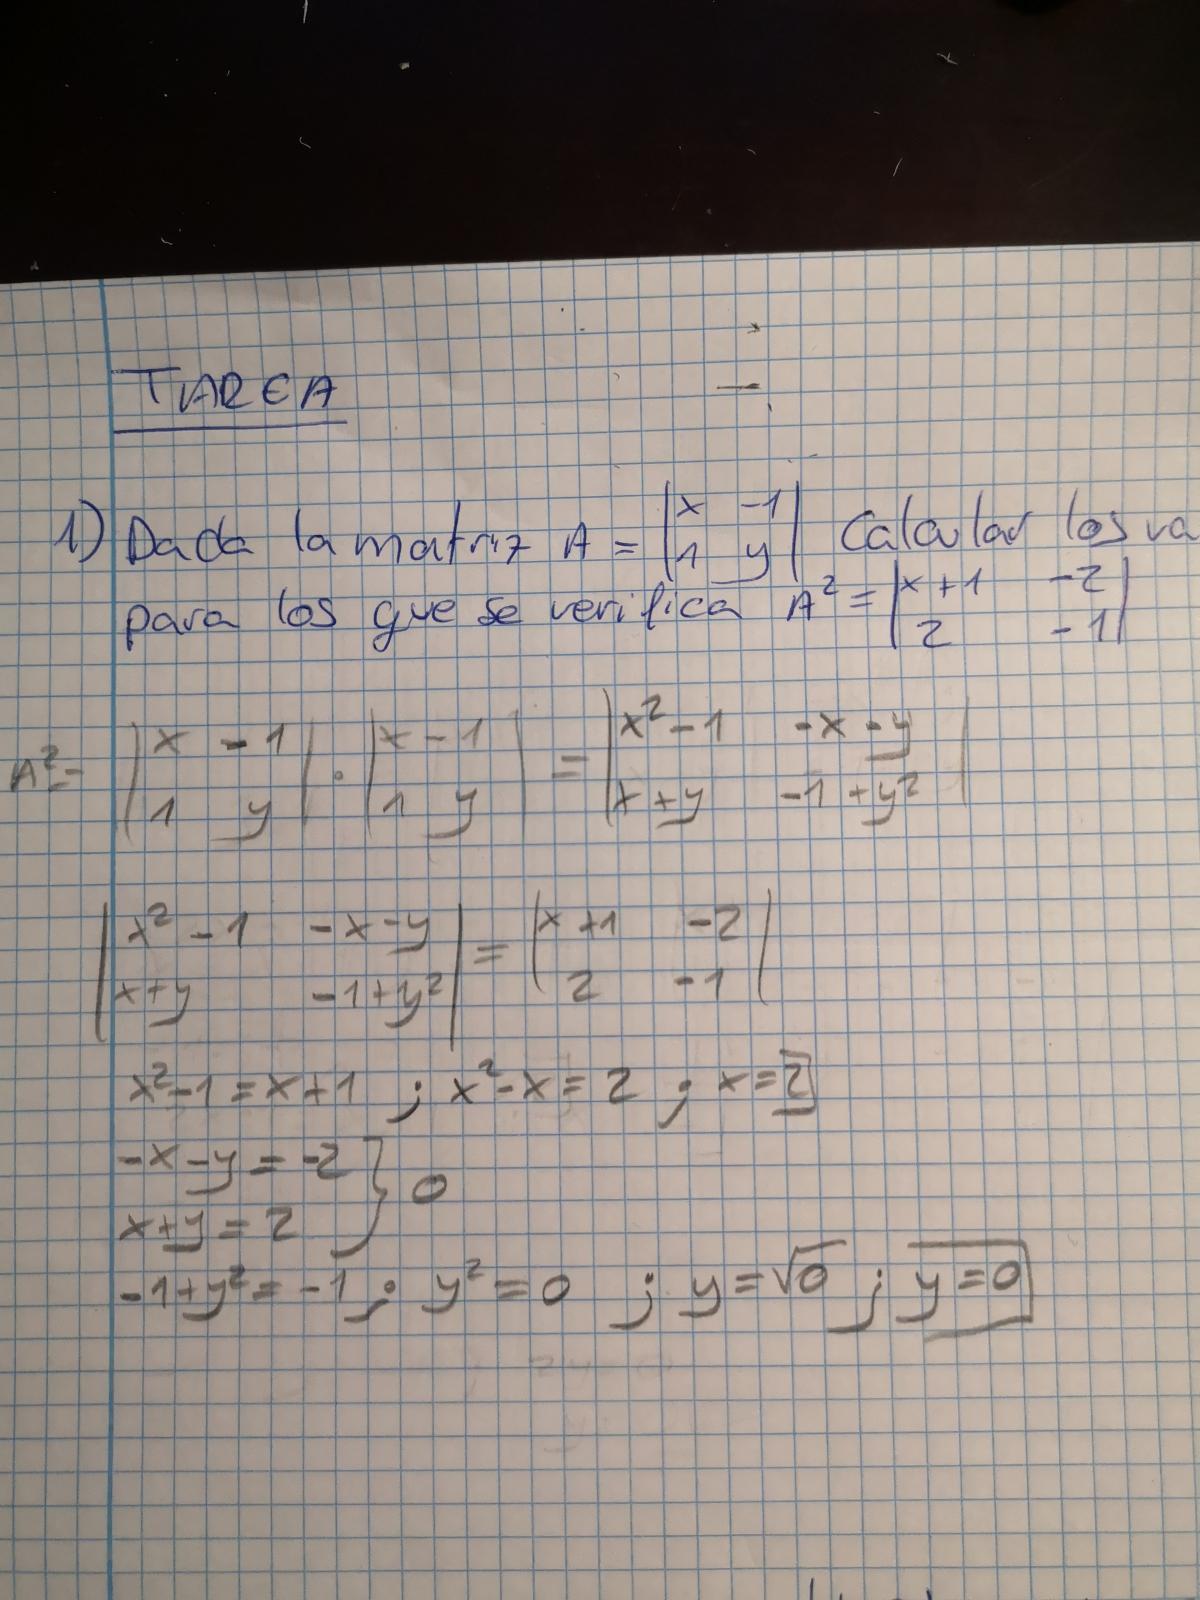 TAREA
1) Dada la matriz A = |x -1| Calcular los va
|1 y|
para los que se verifica A² = |x+1 -2|
|2 -1|
A² = |x -1| · |x -1| = |x²-1 -x-y|
|1 y| |1 y| |x+y -1+y²|
|x²-1 -x-y| = |x+1 -2|
|x+y -1+y²| |2 -1|
x²-1=x+1 ; x²-x=2 ; x=2
-x-y=-2 } 0
x+y=2
-1+y²=-1 ; y²=0 ; y=√0 ; y=0